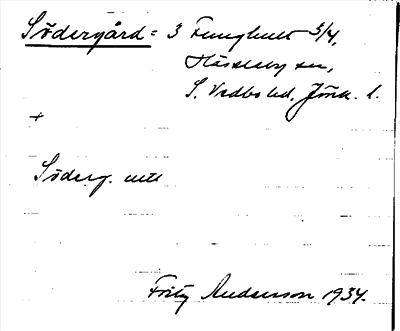 Södergård = 3 Funghult 5/4,
Hässleby sn,
S. Vedbo hd, Jönk. l.
+
Söderg. utt
Fritz Anderson 1934.